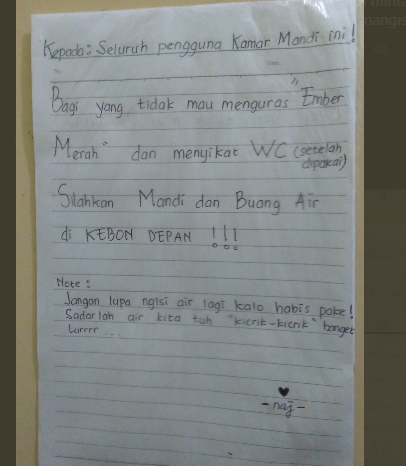 Kepada: Seluruh pengguna Kamar Mandi ini!
No.
Date.
Bagi yang tidak mau menguras "Ember
Merah" dan menyikat WC (setelah
dipakai)
Silahkan Mandi dan Buang Air
di KEBON DEPAN !!!
Note:
Jangan lupa ngisi air lagi kalo habis pake!
Sadarlah air kita tuh "kicrik-kicrik" banget
Lurrrr...
- naj -